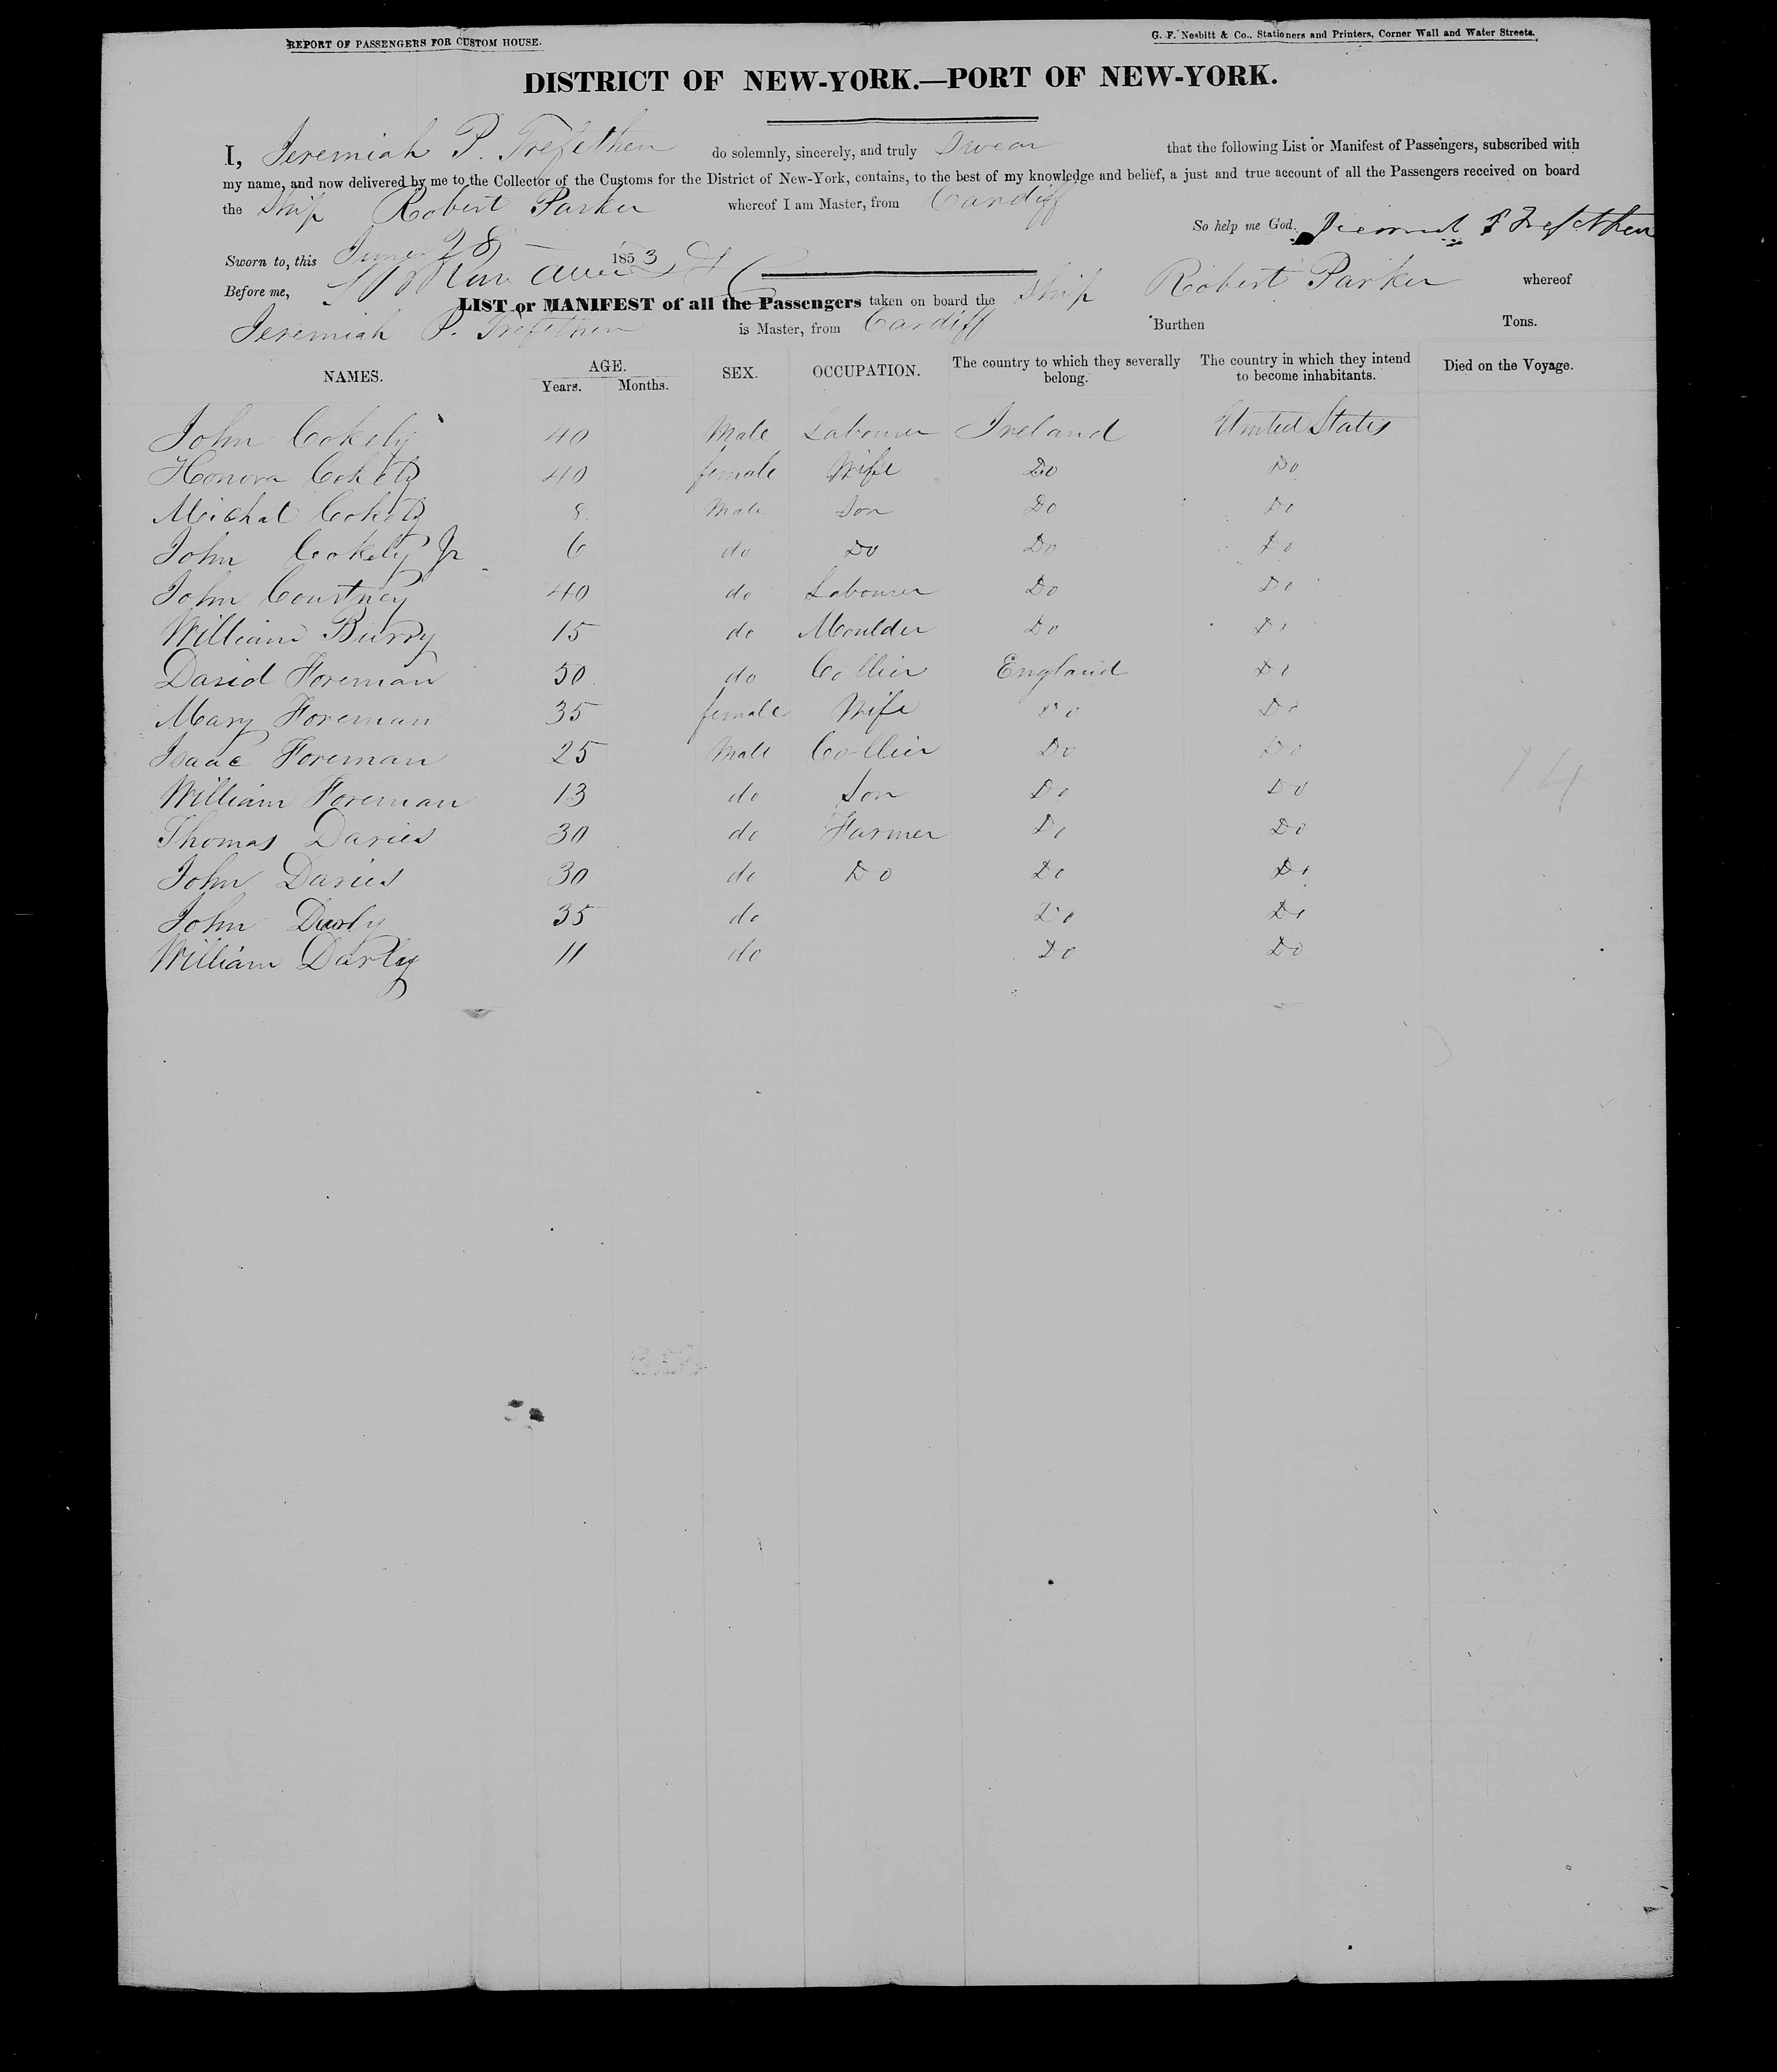 REPORT OF PASSENGERS FOR CUSTOM HOUSE.
G. F. Nesbitt & Co., Stationers and Printers, Corner Wall and Water Streets.
DISTRICT OF NEW-YORK.—PORT OF NEW-YORK.
I, Jeremiah P. Trefethen do solemnly, sincerely, and truly Swear that the following List or Manifest of Passengers, subscribed with
my name, and now delivered by me to the Collector of the Customs for the District of New-York, contains, to the best of my knowledge and belief, a just and true account of all the Passengers received on board
the Ship Robert Parker whereof I am Master, from Cardiff
So help me God. Jeremiah P Trefethen
Sworn to, this June 28 1853
Before me,
LIST or MANIFEST of all the Passengers taken on board the Ship Robert Parker whereof
Jeremiah P. Trefethen is Master, from Cardiff Burthen Tons.
NAMES. AGE. Years. Months. SEX. OCCUPATION. The country to which they severally belong. The country in which they intend to become inhabitants. Died on the Voyage.
John Cokely 40 Male Labourer Ireland United States
Honora Cokely 40 female Wife Do Do
Michal Cokely 8 Male Son Do Do
John Cokely Jr 6 do Do Do Do
John Courtney 40 do Labourer Do Do
William Burry 15 do Moulder Do Do
David Foreman 50 do Collier England Do
Mary Foreman 35 female Wife Do Do
Isaac Foreman 25 Male Collier Do Do
William Foreman 13 do Son Do Do
Thomas Davies 30 do Farmer Do Do
John Davies 30 do Do Do Do
John Darly 35 do Do Do
William Darley 11 do Do Do
14